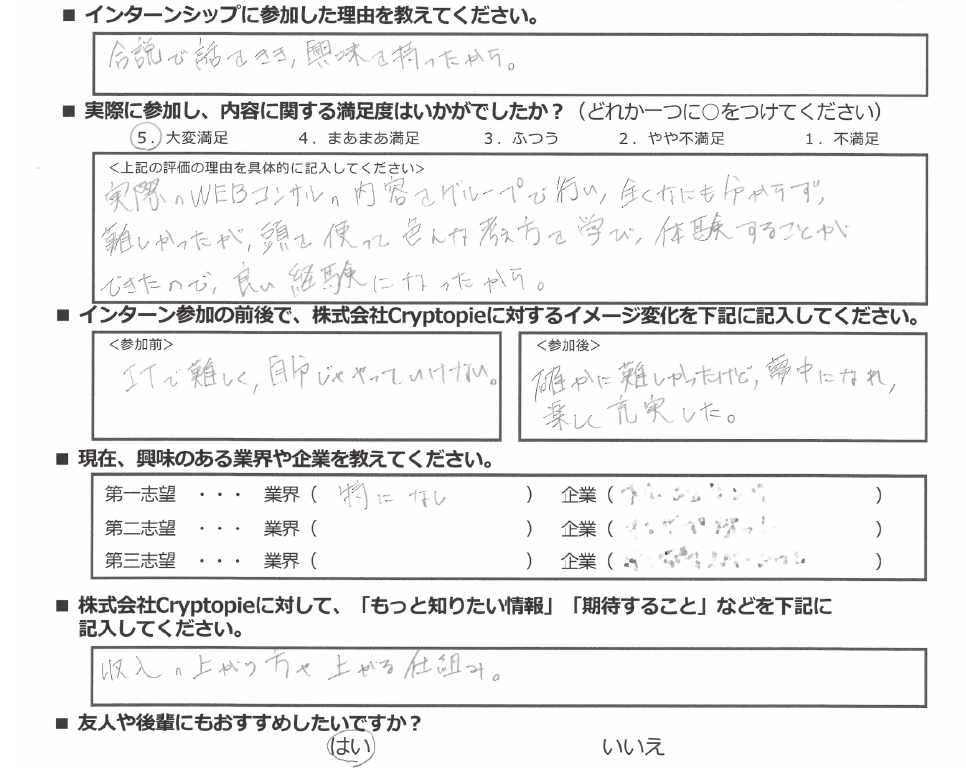 ■ インターンシップに参加した理由を教えてください。
合説で話をきき,興味を持ったから。
■ 実際に参加し、内容に関する満足度はいかがでしたか？（どれか一つに○をつけてください）
5．大変満足 4．まあまあ満足 3．ふつう 2．やや不満足 1．不満足
＜上記の評価の理由を具体的に記入してください＞
実際のWEBコンサルの内容をグループで行い,全くなにも分からず,
難しかったが,頭を使って色んな考え方を学び,体験することが
できたので,良い経験になったから。
■ インターン参加の前後で、株式会社Cryptopieに対するイメージ変化を下記に記入してください。
＜参加前＞
ITで難しく,自分じゃやっていけない。
＜参加後＞
確かに難しかったけど,夢中になれ,
楽しく充実した。
■ 現在、興味のある業界や企業を教えてください。
第一志望 ・・・ 業界（ 特になし ） 企業（ ）
第二志望 ・・・ 業界（ ） 企業（ ）
第三志望 ・・・ 業界（ ） 企業（ ）
■ 株式会社Cryptopieに対して、「もっと知りたい情報」「期待すること」などを下記に
記入してください。
収入の上がり方や上がる仕組み。
■ 友人や後輩にもおすすめしたいですか？
はい いいえ